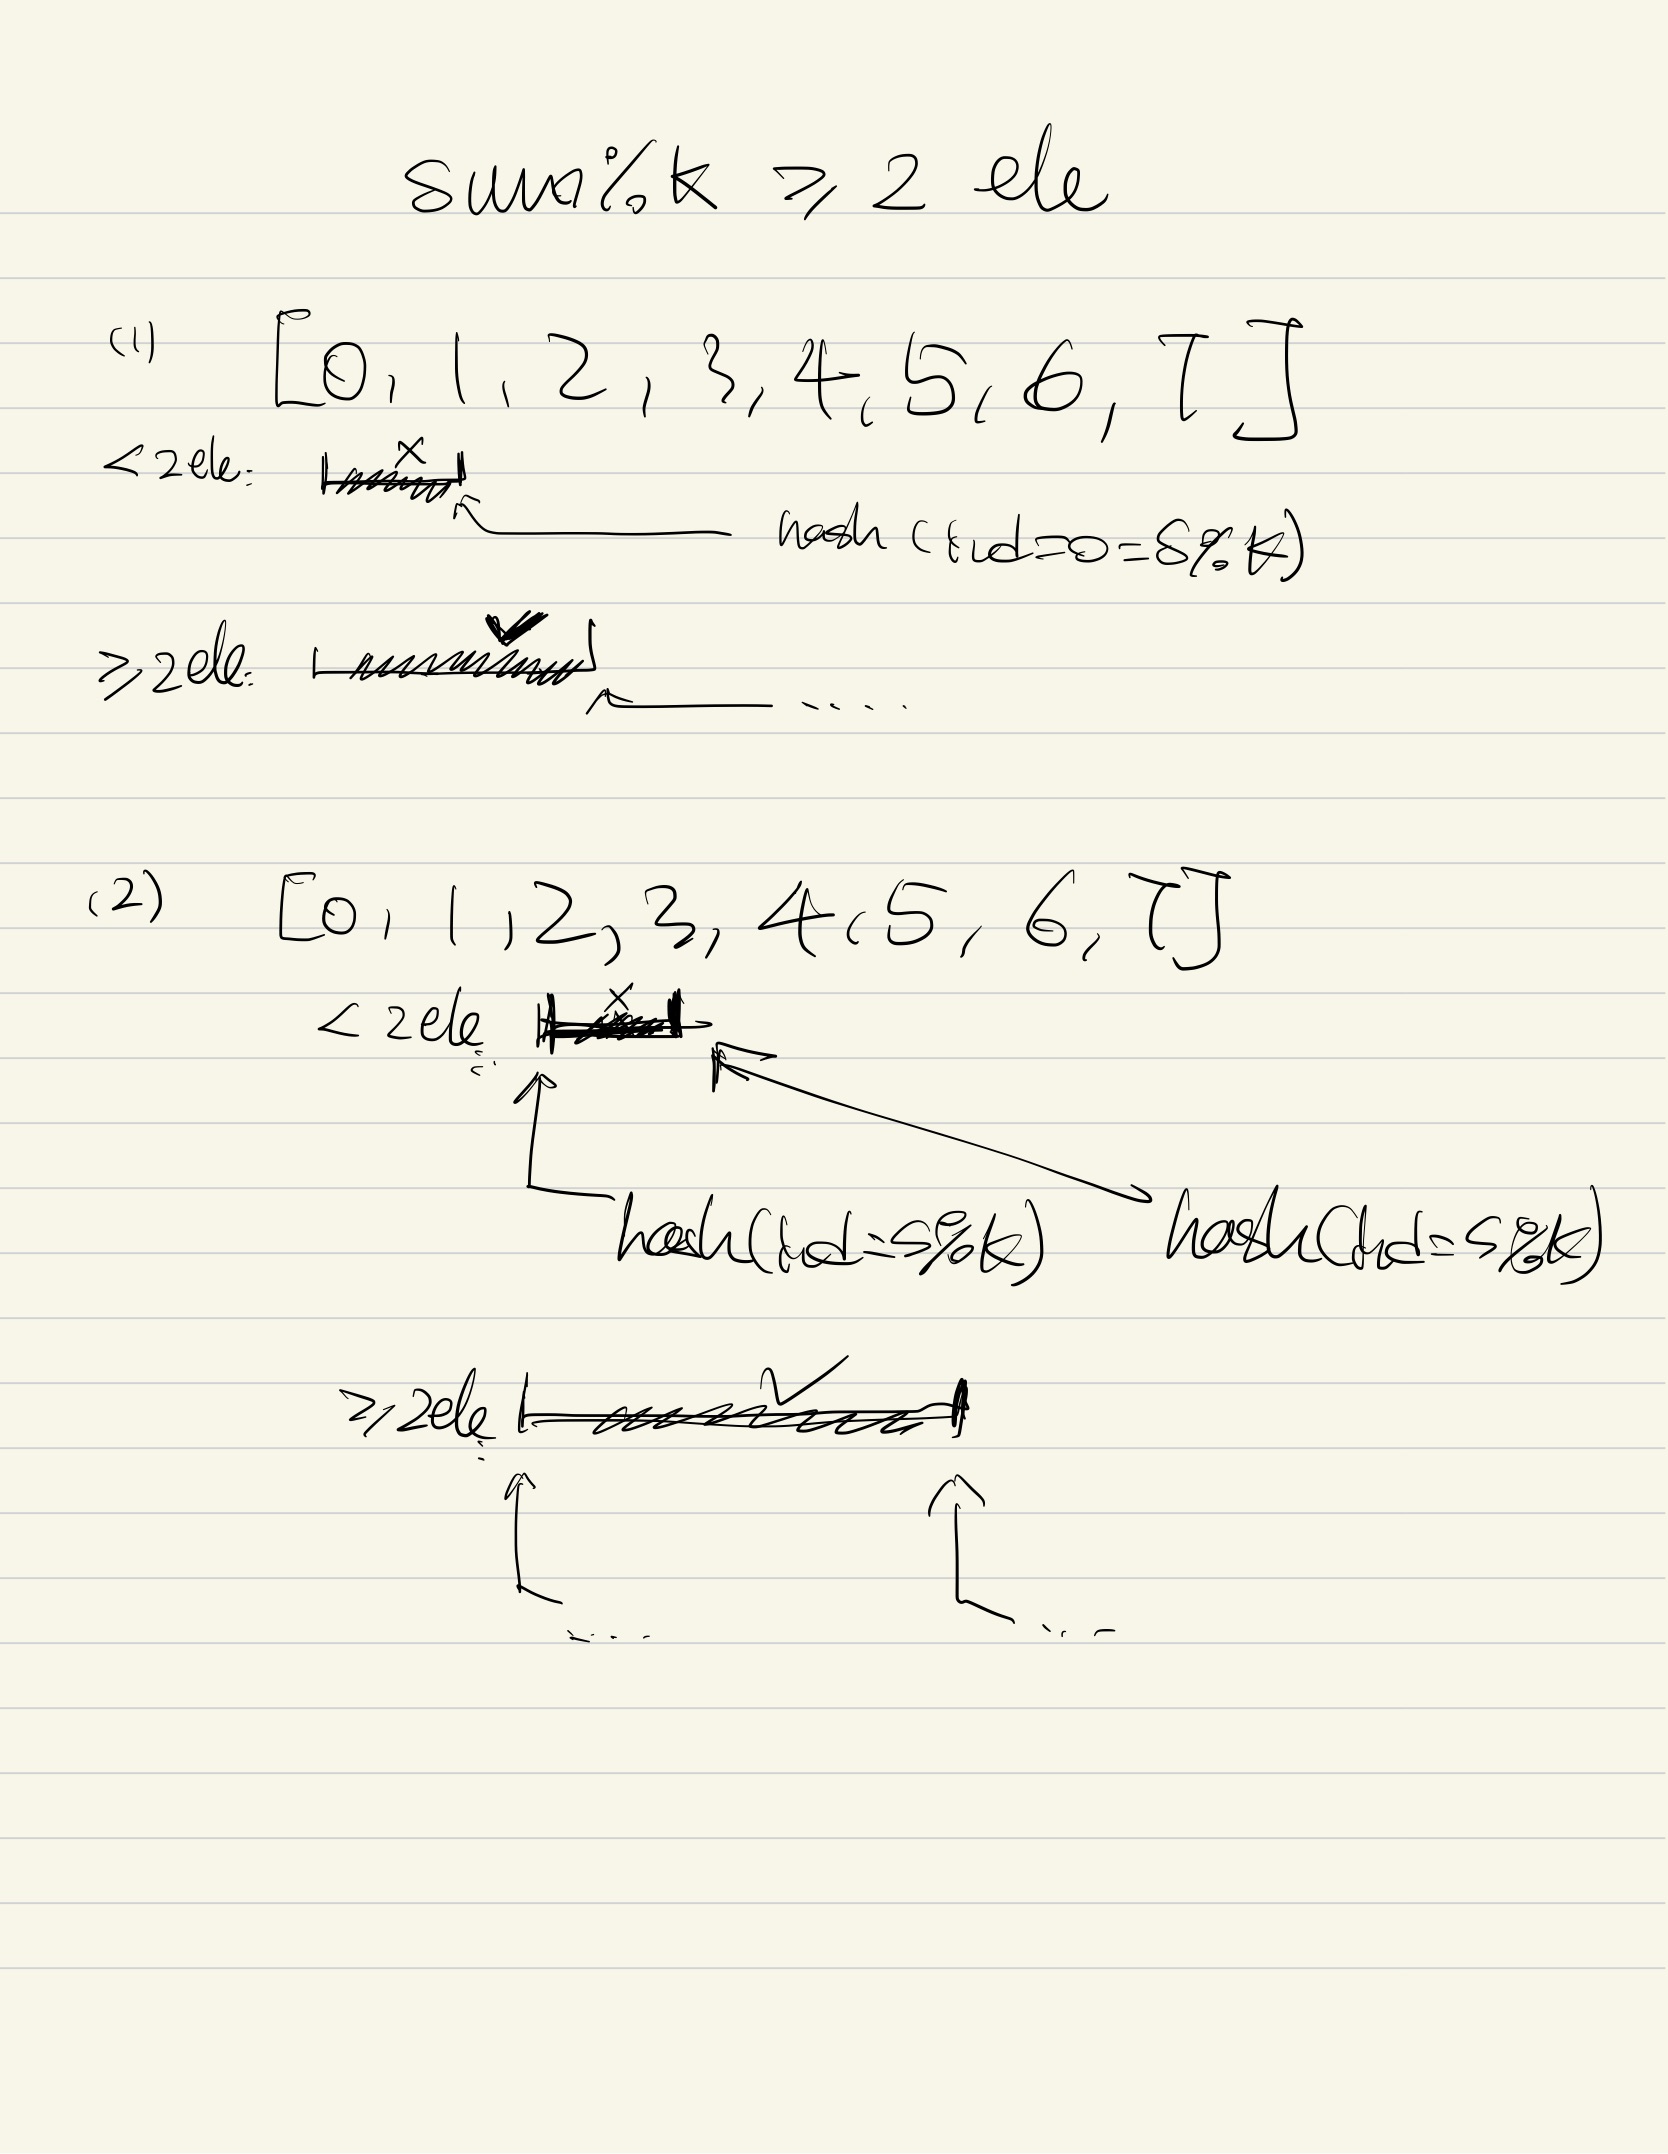 sum%k ≥ 2 ele
(1) [0, 1, 2, 3, 4, 5, 6, 7]
< 2ele: x
hash (find=0=s%k)
≥ 2ele: ✓
.....
(2) [0, 1, 2, 3, 4, 5, 6, 7]
< 2ele: x
hash(find=s%k) hash(find=s%k)
≥ 2ele: ✓
.... ....